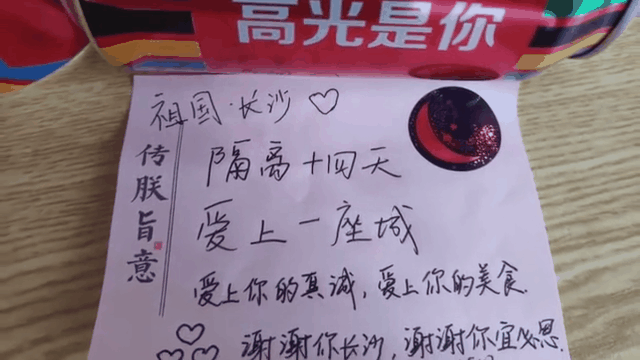 高光是你
祖国·长沙♡
传朕旨意
隔离十四天
爱上一座城
爱上你的真诚,爱上你的美食.
谢谢你长沙,谢谢你宜必思.